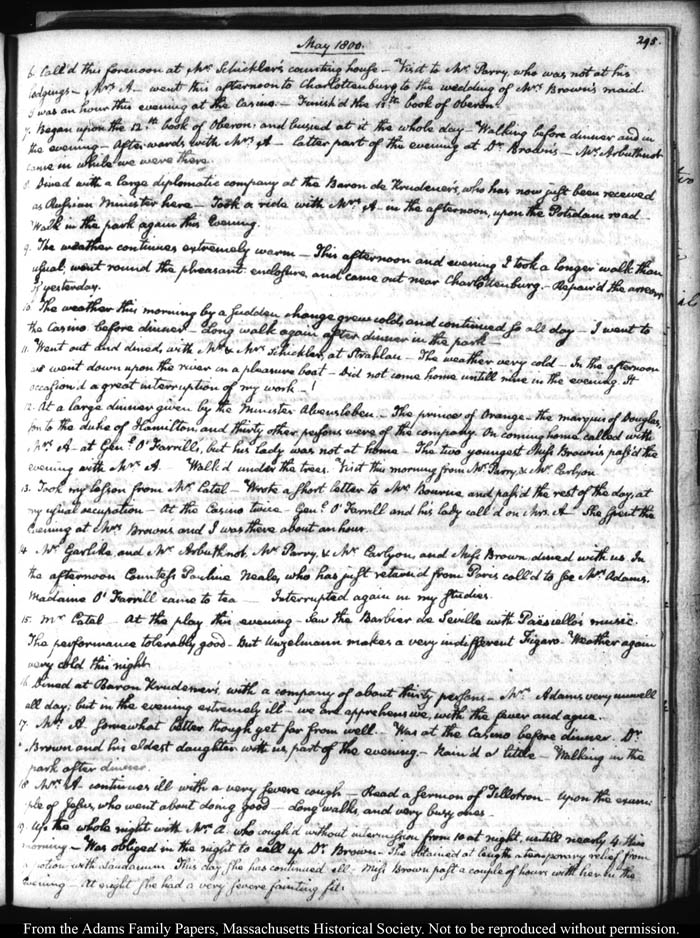 May 1800.
295.
6 Call'd this forenoon at Mr. Schickler's counting house — Visit to Mr. Parry, who was not at his
lodgings — Mrs. A— went this afternoon to Charlottenburg to the wedding of Mrs. Brown's maid.
I was an hour this evening at the Casino. — Finish'd the 11th book of Oberon.
7. Began upon the 12.th book of Oberon; and busied at it the whole day — Walking before dinner and in
the evening — Afterwards with Mrs. A — latter part of the evening at Dr. Brown's — Mr. Arbuthnot
came in while we were there.
8. Dined with a large diplomatic company at the Baron de Krudener's, who has now just been received
as Russian Minister here — Took a ride with Mrs. A— in the afternoon, upon the Potsdam road —
Walk in the park again this Evening.
9. The weather continues extremely warm — This afternoon and evening I took a longer walk than
usual; went round the pheasant enclosure, and came out near Charlottenburg. — Repair'd the arrears
of yesterday.
10 The weather this morning by a sudden change grew cold, and continued so all day — I went to
the Casino before dinner — long walk again after dinner in the park —
11. Went out and dined, with Mr. & Mrs. Schickler, at Strahlau — The weather very cold — In the afternoon
we went down upon the river in a pleasure boat — Did not come home untill nine in the evening. It
occasion'd a great interruption of my work — !
12. At a large dinner given by the Minister Alvensleben. — The prince of Orange — the marquis of Douglas,
son to the duke of Hamilton, and thirty other persons were of the company. On coming home called with
Mrs. A— at Genl. O'Farrill's, but his lady was not at home — The two youngest Miss Brown's pass'd the
evening with Mrs. A. — Walk'd under the trees. Visit this morning from Mr. Parry, & Mr. Carlyon.
13. Took my lesson from Mr. Catel — Wrote a short letter to Mr. Bourne, and pass'd the rest of the day, at
my usual occupation — At the Casino twice — Genl. O'Farrill and his lady call'd on Mrs. A— She spent the
Evening at Mrs. Browns and I was there about an hour.
14. Mr. Garlike, and Mr. Arbuthnot, Mr. Parry, & Mr. Carlyon, and Miss Brown, dined with us. In
the afternoon Countess Pauline Neale, who has just return'd from Paris call'd to see Mrs. Adams.
Madame O'Farrill came to tea — Interrupted again in my studies.
15. Mr Catel — At the play this evening — Saw the Barbier de Seville with Päesiello's music.
The performance tolerably good — But Unzelmann makes a very indifferent Figaro. Weather again
very cold this night
16 Dined at Baron Krudener's, with a company of about thirty persons — Mrs. Adams very unwell
all day; but in the evening extremely ill — we are apprehensive, with the fever and ague.
17. Mrs. A somewhat better though yet far from well. — Was at the Casino before dinner. Dr.
Brown and his eldest daughter with us, part of the evening. — Rain'd a little — Walking in the
park after dinner.
18. Mrs. A— continues ill with a very severe cough — Read a sermon of Tillotson — Upon the exam-
ple of Jesus, who went about doing good — long walks, and very busy ones —
19. Up the whole night with Mrs. A. who cough'd without intermission from 10 at night, untill nearly 4 this
morning — Was obliged in the night to call up Dr. Brown. She obtained at length a temporary relief from
a potion with laudanum This day she has continued ill — Miss Brown past a couple of hours with her in the
Evening — At night she had a very severe fainting fit.
From the Adams Family Papers, Massachusetts Historical Society. Not to be reproduced without permission.